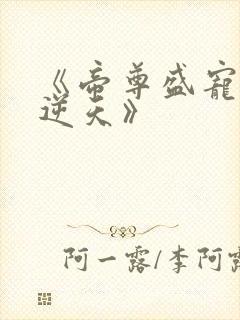 《帝尊盛寵
逆天》
阿一露/李阿露